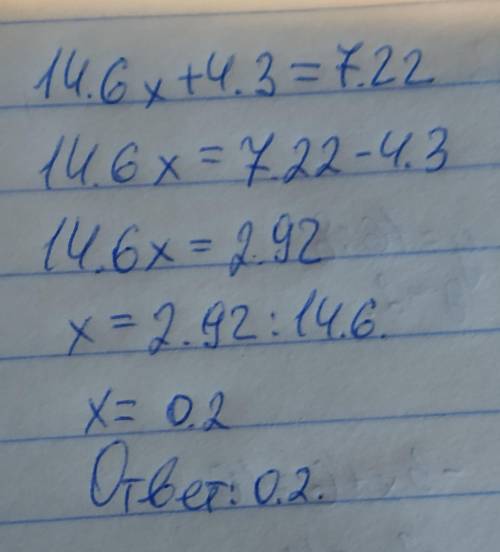 14.6x+4.3=7.22
14.6x=7.22-4.3
14.6x=2.92
x=2.92:14.6.
x=0.2
Ответ: 0.2.